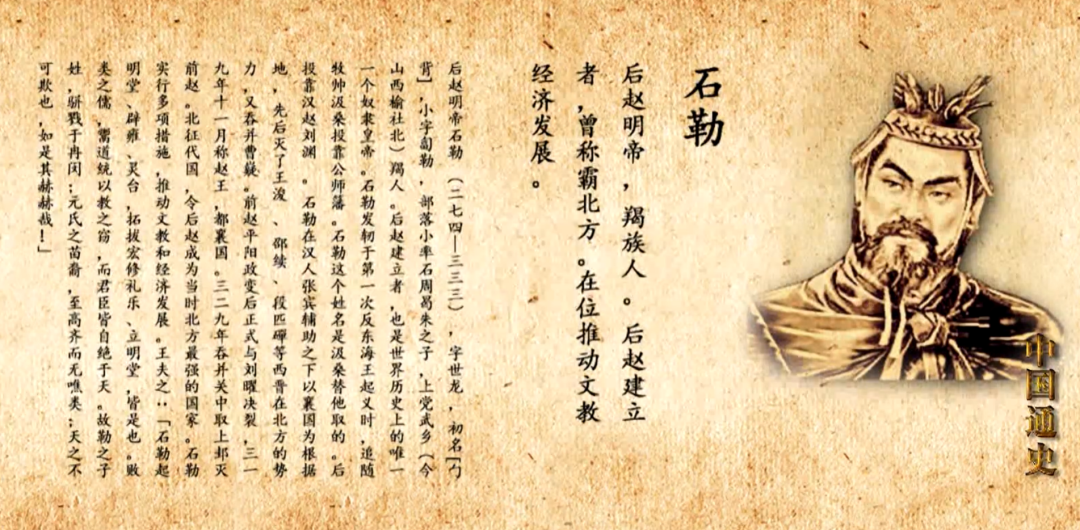 石勒
后赵明帝，羯族人。后赵建立
者，曾称霸北方。在位推动文教
经济发展。
后赵明帝石勒（二七四—三三三），字世龙，初名［㔨
背］，小字匐勒，部落小率石周曷朱之子，上党武乡（今
山西榆社北）羯人。后赵建立者，也是世界历史上的唯一
一个奴隶皇帝。石勒发轫于第一次反东海王起义时，追随
牧帅汲桑投靠公师藩。石勒这个姓名是汲桑替他取的。后
投靠汉赵刘渊。石勒在汉人张宾辅助之下以襄国为根据
地，先后灭了王浚、邵续、段匹磾等西晋在北方的势
力，又吞并曹嶷。前赵平阳政变后正式与刘曜决裂，三一
九年十一月称赵王，都襄国。三二九年吞并关中取上邽灭
前赵。北征代国，令后赵成为当时北方最强的国家。石勒
实行多项措施，推动文教和经济发展。王夫之：「石勒起
明堂、辟雍、灵台，拓拔宏修礼乐、立明堂，皆是也。败
类之儒，鬻道统以教之窃，而君臣皆自绝于天。故勒之子
姓，骈戮于冉闵；元氏之苗裔，至高齐而无噍类；天之不
可欺也，如是其赫赫哉！」
中国通史